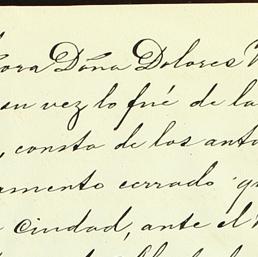 ora Dóna Dolores
su vez lo fué de la
, consta de los
amento cerrado
Ciudad, ante el